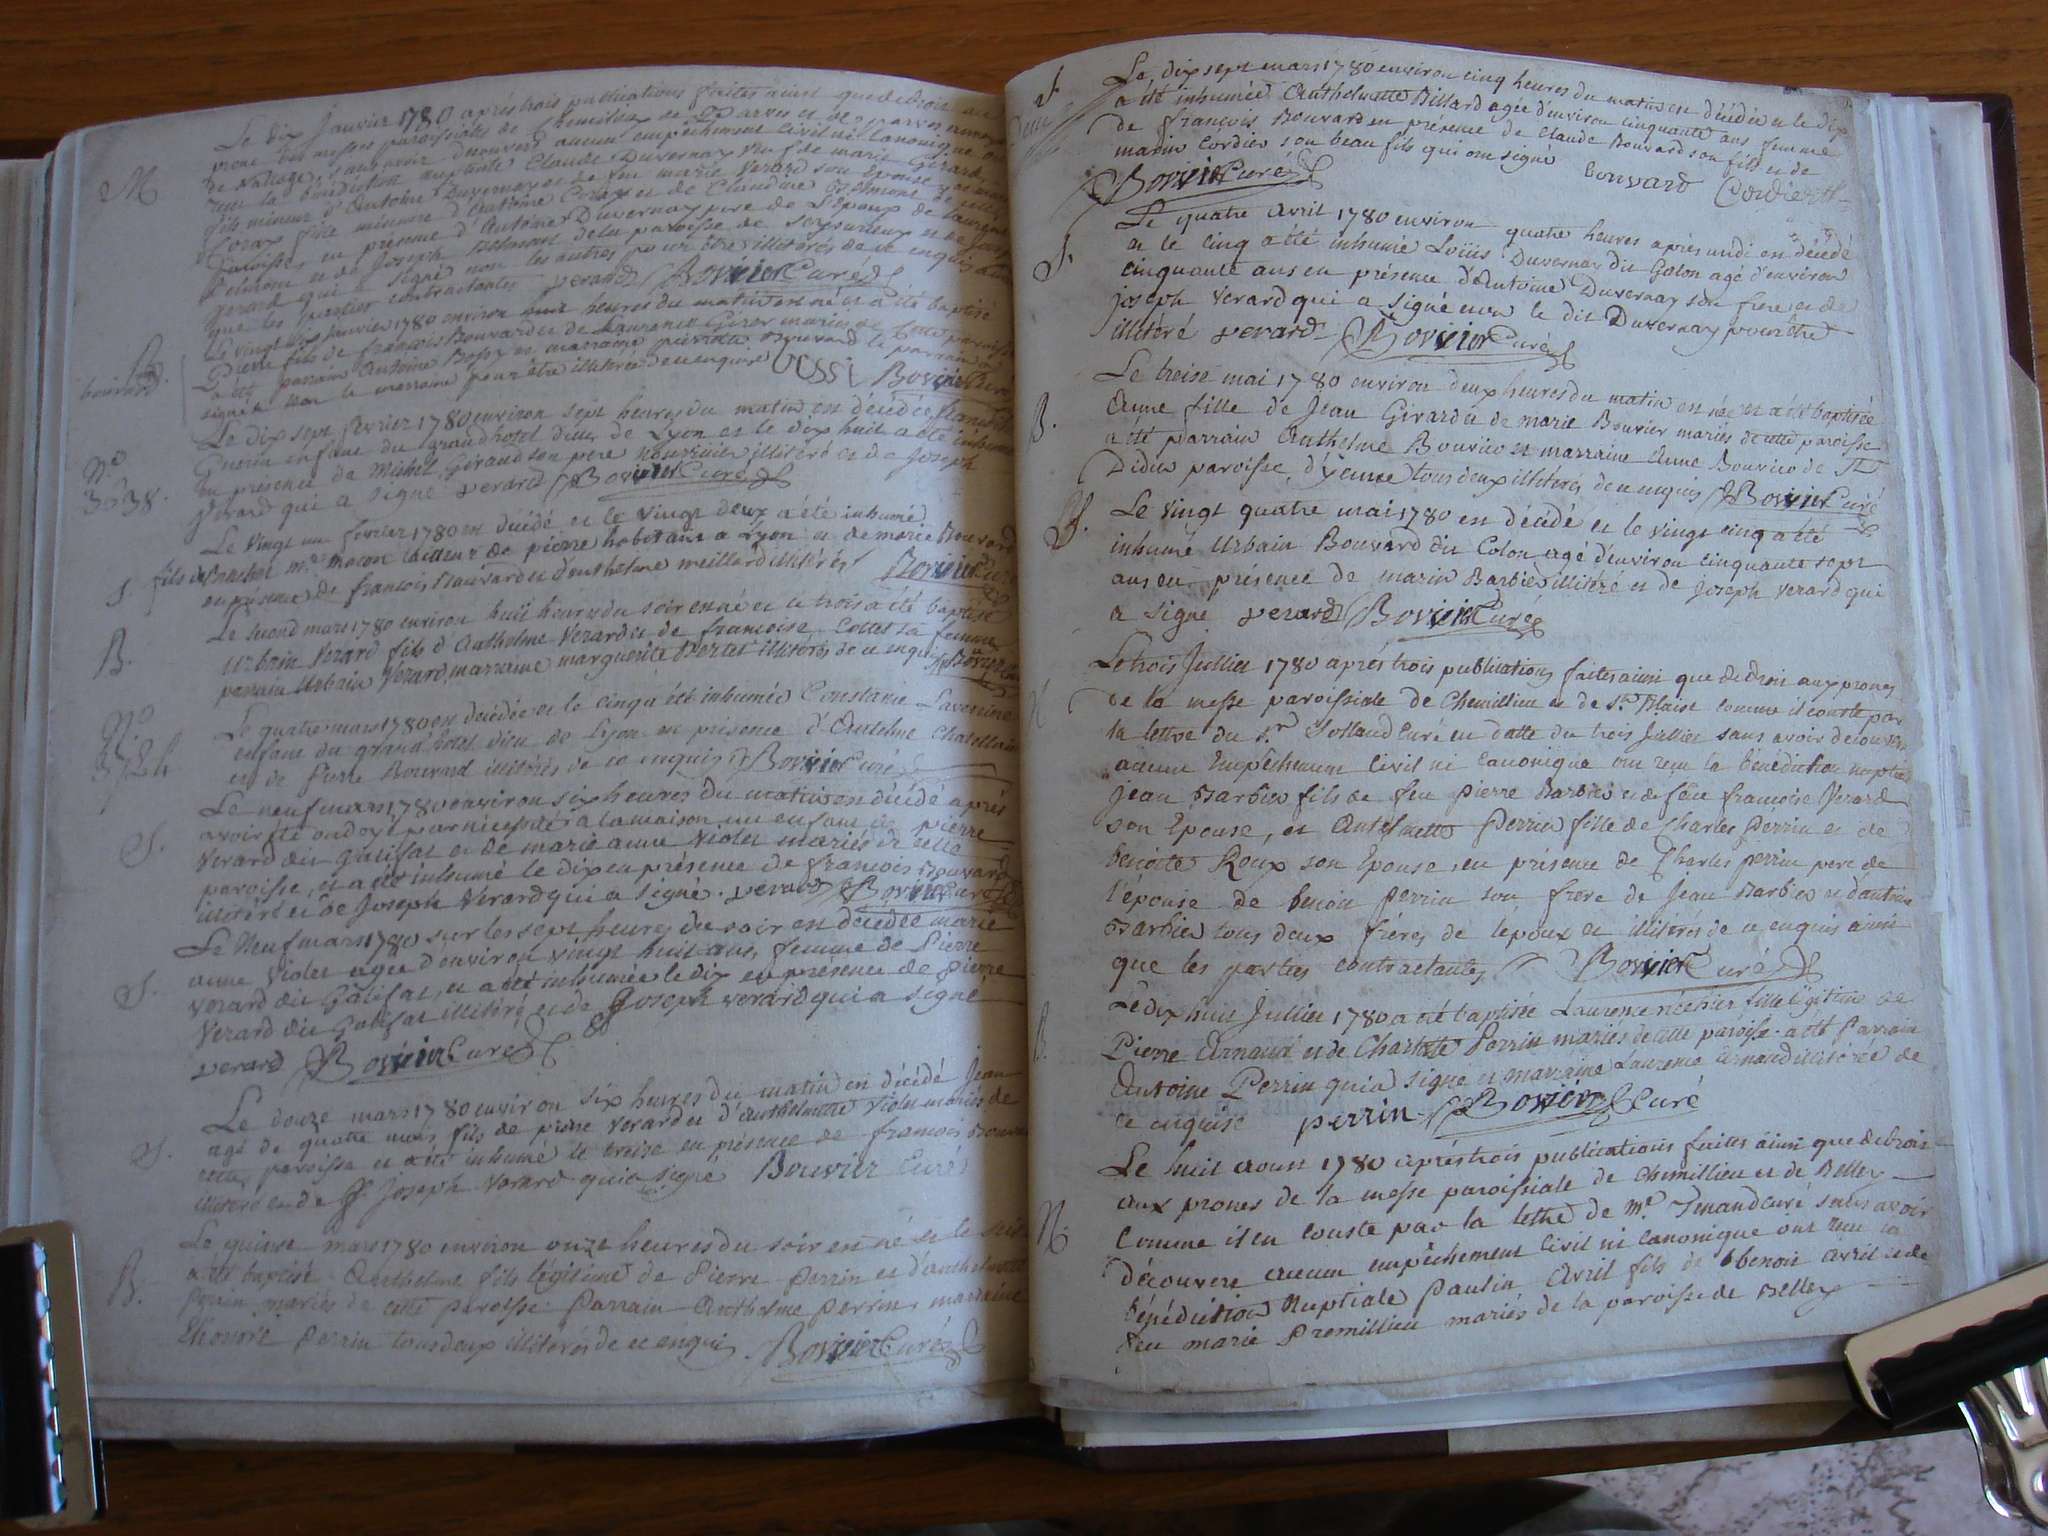 Le dix Janvier 1780 après trois publications faites ainsi que de droit au
prone des messes paroissiales de Chemillieu de Parves et de
de Nattages, sans avoir decouvert aucun empêchement Civil ni Canonique ont
reçu la bénédiction nuptiale Claude Duvernay veuf de marie Girard,
fils mineur d'Antoine Duvernay et de feu marie Verard son Epouse, et
Corax fille mineure d'Antoine Corax et de Claudine
Paroisse, en présence d'Antoine Duvernay pere de L'Epoux de Laurent
et de Joseph de la paroisse de
Verard qui a signé non les autres pour être illiterés de ce enquis ainsi
que les parties contractantes verard Bovier Curé
M
Le vingt six Janvier 1780 environ heures du matin est né et a été baptisé
Pierre fils de François Bouvard et de Laurence Girer mariés de cette paroisse
a été parrain Antoine Bossy et marraine pierrette Bouvard le parrain a
signé non la marraine pour être illiterée de ce enquise Bossi Bovier Curé
bouvard
Le dix sept fevrier 1780 environ sept heures du matin est décédée
Guerin enfant du grand hotel Dieu de Lyon et le dix huit a été inhumé
en présence de Michel Girard son pere nourricier illitéré et de Joseph
Verard qui a signé verard Bovier Curé
N.o
3038.
Le vingt un fevrier 1780 est décédé et le vingt deux a été inhumé
fils de m.e macon tailleur de pierre habitant a Lyon et de marie Bouvard
en présence de françois Bouvard et d'anthelme meillard illitérés Bovier Curé
S.
Le second mars 1780 environ huit heures du soir est né et le trois a été baptisé
Urbain Verard fils d'Anthelme Verard et de françoise Collet sa femme
parrain Urbain Verard, marraine marguerite Pertet illiterés de ce enquis Bovier Curé
B.
Le quatre mars 1780 est décédée et le cinq a été inhumée Constanie Lavernine
enfant du grand hotel Dieu de Lyon en présence d'Antelme Chatellain
et de Pierre Bouvard illiterés de ce enquis Bovier Curé
N.o
Le neuf mars 1780 environ six heures du matin est décédé après
avoir été ondoyé par nécessité à la maison un enfant de pierre
Verard dit Galifat et de marie anne Violet mariés de cette
paroisse, et a été inhumé le dix en présence de françois Bouvard
illitéré et de Joseph Verard qui a signé. verard Bovier Curé
S.
Le Neuf mars 1780 sur les sept heures du soir est décédée marie
anne Violet agée d'environ vingt huit ans, femme de Pierre
Verard dit Galifat, et a été inhumée le dix en présence de pierre
Verard dit Galifat illitéré et de Joseph verard qui a signé
verard Bovier Curé
S.
Le douze mars 1780 environ six heures du matin est décédé Jean
agé de quatre mois fils de pierre Verard et d'anthelmette Violet mariés de
cette paroisse et a été inhumé le treize en présence de françois Bouvard
illitéré et de Joseph Verard qui a signé Bouvier Curé
S.
Le quinze mars 1780 environ onze heures du soir est né et le seize
a été baptisé Anthelme fils légitime de Pierre Perrin et d'anthelmette
Perrin mariés de cette paroisse. Parrain Anthelme perrin, marraine
Perrin tous deux illiterés de ce enquis Bovier Curé
B.
S.
Le dix sept mars 1780 environ cinq heures du matin est décédée et le dix
a été inhumée Anthelmette Billard agée d'environ cinquante ans femme
de françois Bouvard en présence de claude Bouvard son fils et de
marin Cordier son beau fils qui ont signé bouvard Cordier
Bovier Curé
S.
Le quatre Avril 1780 environ quatre heures après midi est décédé
et le cinq a été inhumé Loüis Duvernay dit Golon agé d'environ
cinquante ans en présence d'Antoine Duvernay son frere et de
joseph Verard qui a signé non le dit Duvernay pour être
illitéré verard Bovier Curé
B.
Le treise mai 1780 environ deux heures du matin est née et a été baptisée
Anne fille de Jean Girard et de marie Bouvier mariés de cette paroisse
a été parrain Anthelme Bouvier et marraine Anne Bouvier de St
Didier paroisse d'yenne tous deux illitérés de ce enquis Bovier Curé
S.
Le Vingt quatre mai 1780 est décédé et le vingt cinq a été
inhumé Urbain Bouvard dit Colon agé d'environ cinquante sept
ans en présence de marin Barbier illitéré et de joseph Verard qui
a signé verard Bovier Curé
Le trois Juillet 1780 après trois publications faites ainsi que de droit aux prones
de la messe paroissiale de Chemillieu et de St Blaise comme il conste par
la lettre du S.r Curé en datte du trois Juillet sans avoir decouvert
aucun Empêchement Civil ni Canonique ont reçu la bénédiction nuptiale
Jean Barbier fils de feu Pierre Barbier et de feüe françoise Verard
son Epouse, et Antelmette Perrin fille de Charles Perrin et de
benoite Roux son Epouse, en présence de Charles Perrin pere de
l'épouse de benoit Perrin son frere de Jean Barbier et d'antoine
Barbier tous deux fréres de lepoux et illitérés de ce enquis ainsi
que les parties contractantes Bovier Curé
B.
Le dix huit Juillet 1780 a été baptisée Laurence née hier fille légitime de
Pierre Arnaud et de Charlotte Perrin mariés de cette paroisse. a été Parrain
Antoine Perrin qui a signé et marraine Laurence Arnaud illitérée de
ce enquise perrin Bovier Curé
Le huit aoust 1780 après trois publications faites ainsi que de droit
aux prones de la messe paroissiale de Chemillieu et de Belley
comme il en conste par la lettre de M.r Curé sans avoir
découvert aucun empêchement Civil ni canonique ont reçu la
bénédiction Nuptiale Paulin Avril fils de benoit avril et de
feu marie Premillieu mariés de la paroisse de Belley